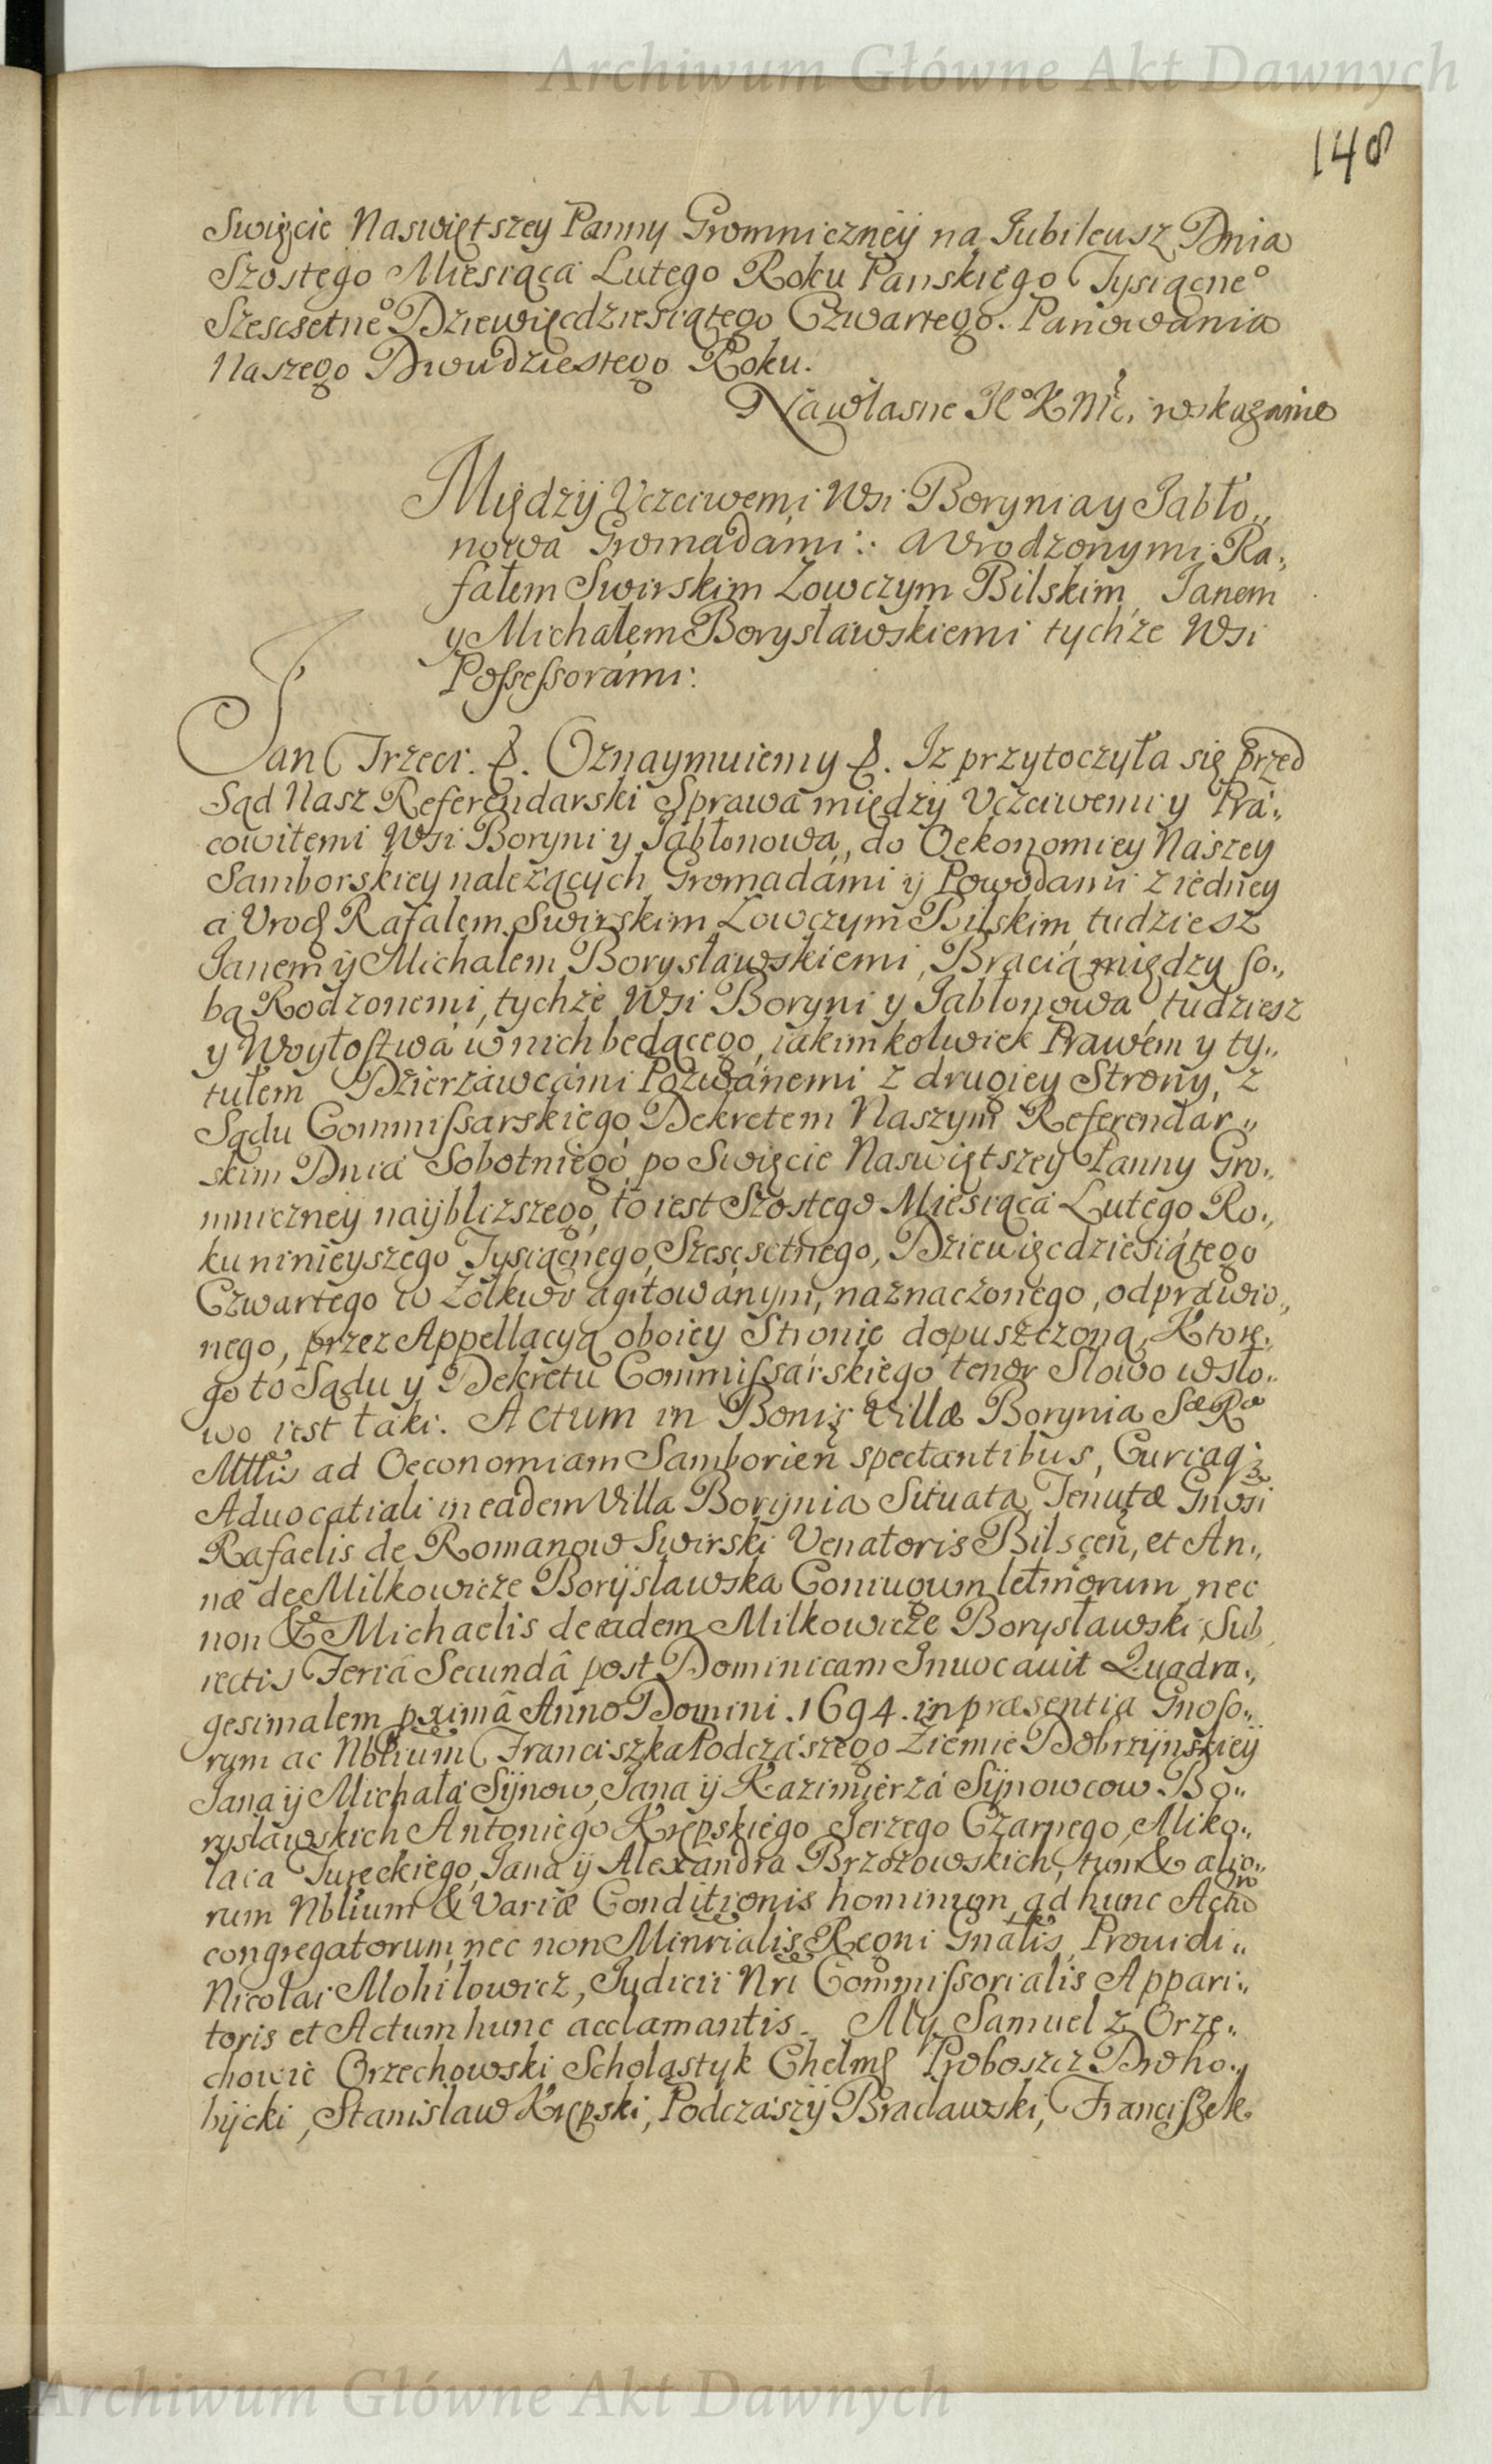 Archiwum Główne Akt Dawnych
148
Swięcie Naswiętszey Panny Gromniczney na Jubileusz Dnia
Szostego Miesiąca Lutego Roku Panskiego Tysiącneº
Szescsetneº Dziewięcdziesiątego Czwartego. Panowania
Naszego Dwudziestego Roku.
Nawłasne Jº K Mći. wskazanie
Między Uczciwemi Wsi Borynia y Jabło,,
nowa Gromadami:. a Urodzonymi Ra,,
fałem Swirskim Łowczym Bilskim, Janem
y Michałem Borysławskiemi tychże Wsi
Possessorámi:
Jan Trzeci. &. Oznaymuiemy &. Iz przytoczyła się przed
Sąd Nasz Referendarski Sprawa między Uczciwemi y Prá,,
cowitemi Wsi Boryni y Jabłonowa, do Oekonomiey Naszey
Samborskiey nalezących Gromadámi y Powodami z iedney
a Urodz Rafałem Swirskim Łowczym Bilskim tudziesz
Janem y Michałem Borysławskiemi, Bracią między so,,
bą Rodzonemi, tychże Wsi Boryni y Jabłonowa tudziesz
y Woytostwa w nich będącego, iakimkolwiek Prawem y ty,,
tułem Dzierzawcámi Pozwánemi z drugiey Strony, z
Sądu Commissarskiego Dekretem Naszym Referendar,,
skim Dnia Sobotniego po Swięcie Naswiętszey Panny Gro,,
mniczney nayblizszego, to iest Szostego Miesiąca Lutego Ro,,
ku ninieyszego Tysiącnego, Szescsetnego, Dziewięcdziesiątego
Czwartego w Zołkwi agitowánym, naznaczonego, odpráwio,,
nego, przez Appellacyą oboiey Stronie dopuszczoną, Ktore,,
go to Sądu y Dekretu Commissárskiego tenor Słowo wsło,,
wo iest táki. Actum in Bonis Villæ Borynia Sæ Ræ
Mttis ad Oeconomiam Samborien spectantibus, Curiaq;
Aduocatiali in eadem Villa Borynia Situata, Tenutæ Gnosi
Rafaelis de Romanow Swirski Venatoris Bilscen, et An,,
næ de Milkowicze Borysławska Coniugum letmorum, nec
non & Michaelis de eadem Milkowicze Borysławski, Sub
rectis Feriâ Secundâ post Dominicam Inuocauit Quadra,,
gesimalem primâ Anno Domini .1694. in præsentia Gnoso,,
rum ac Nblium Franciszka Podczászego Ziemie Dobrzynskiey
Jana y Michałá Synow, Jana y Kazimierzá Synowcow Bo,,
rysławskich Antoniego Krępskiego Jerzego Czarnego, Miko,,
laia Tureckiego, Jana y Alexandra Brzozowskich, tum & alio,,
rum Nblium & Variæ Conditionis hominum, ad hunc Actum
congregatorum, nec non Minrialis Regni Gnalis, Prouidi,,
Nicolai Mohilowicz, Judicii Nri Commissorialis Appari,,
toris et Actum hunc acclamantis. My Samuel z Orze,,
chowic Orzechowski Scholastyk Chelms Proboszcz Droho,,
bycki, Stanisław Krępski, Podczászy Bracławski, Franciszek
Archiwum Główne Akt Dawnych